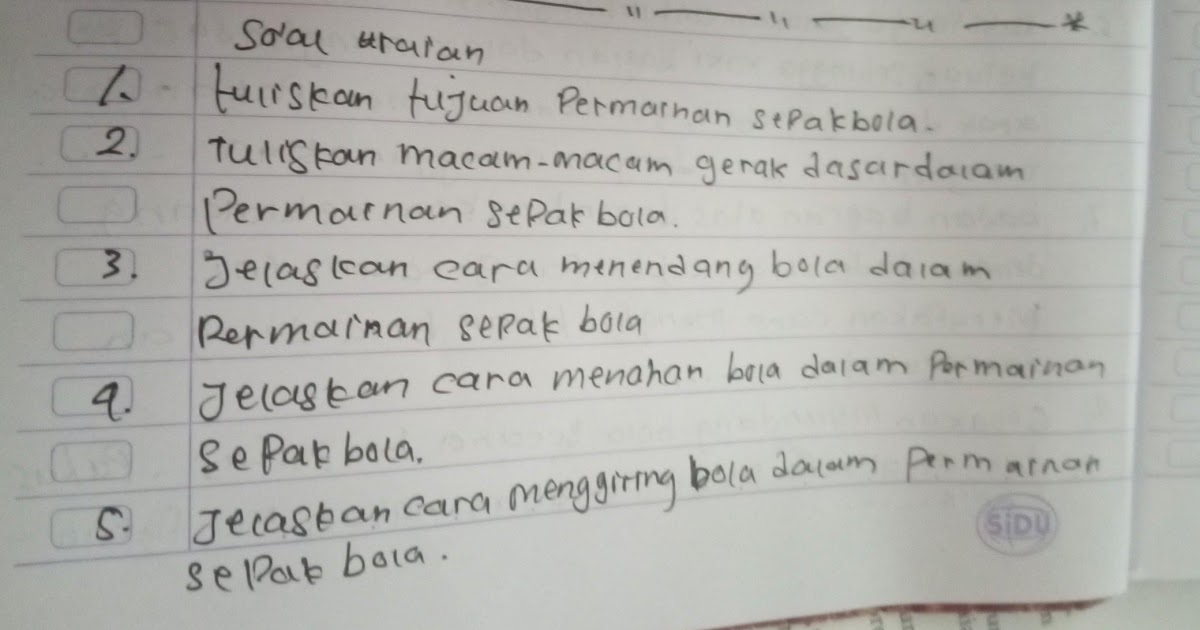 Soal uraian
1. tuliskan tujuan Permainan sepakbola.
2. tuliskan macam-macam gerak dasar dalam
Permainan sepak bola.
3. Jelaskan cara menendang bola dalam
Permainan sepak bola
4. Jelaskan cara menahan bola dalam Permainan
sepak bola.
5. Jelaskan cara menggiring bola dalam Permainan
sepak bola.
SiDU